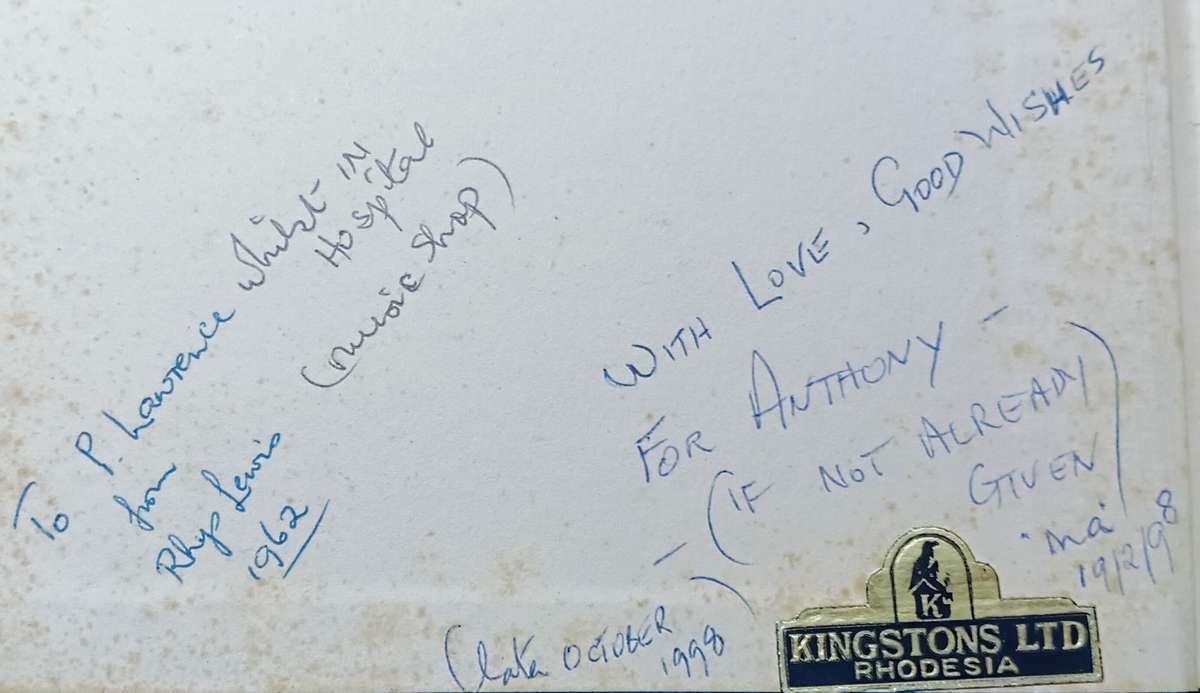 To P. Lawrence whilst IN
Hospital
(music shop)
from
Rhys Lewis
1962
WITH LOVE, GOOD WISHES
FOR ANTHONY -
(IF NOT ALREADY
GIVEN)
'Ma'
19/2/98
(later OCTOBER
1998)
K
KINGSTONS LTD
RHODESIA